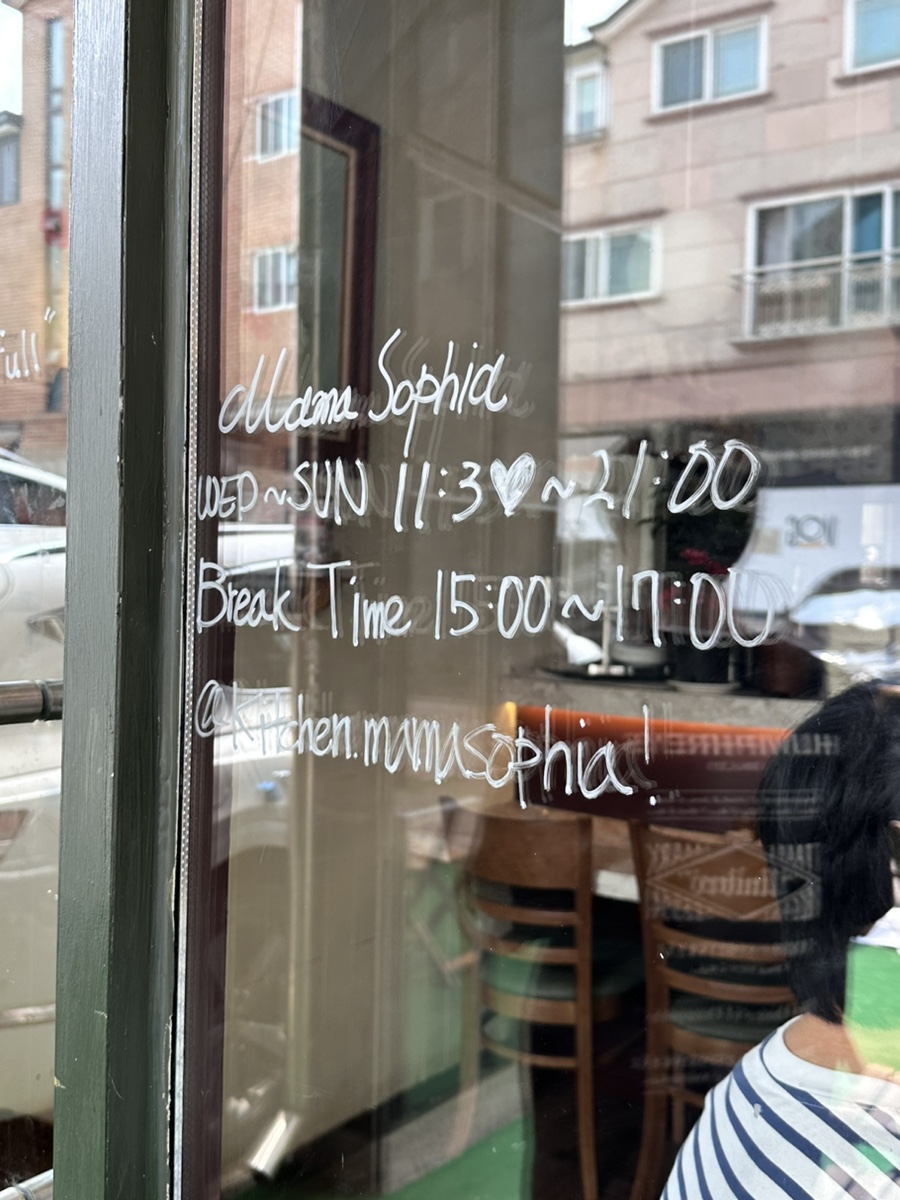 Mama Sophia
WED ~ SUN 11:3♥ ~ 21:00
Break Time 15:00 ~ 17:00
@Kitchen.mamasophia!
full"